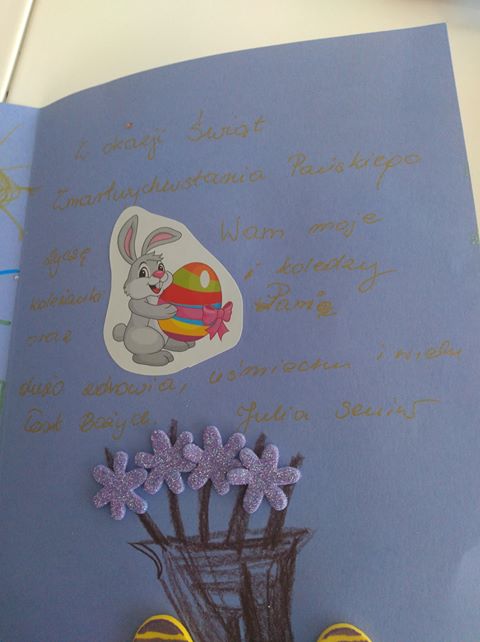 Z okazji Świąt
Zmartwychwstania Pańskiego
życzę Wam moje
koleżanki i koledzy
oraz Panie
dużo zdrowia, uśmiechu i wielu
Łask Bożych. Julia